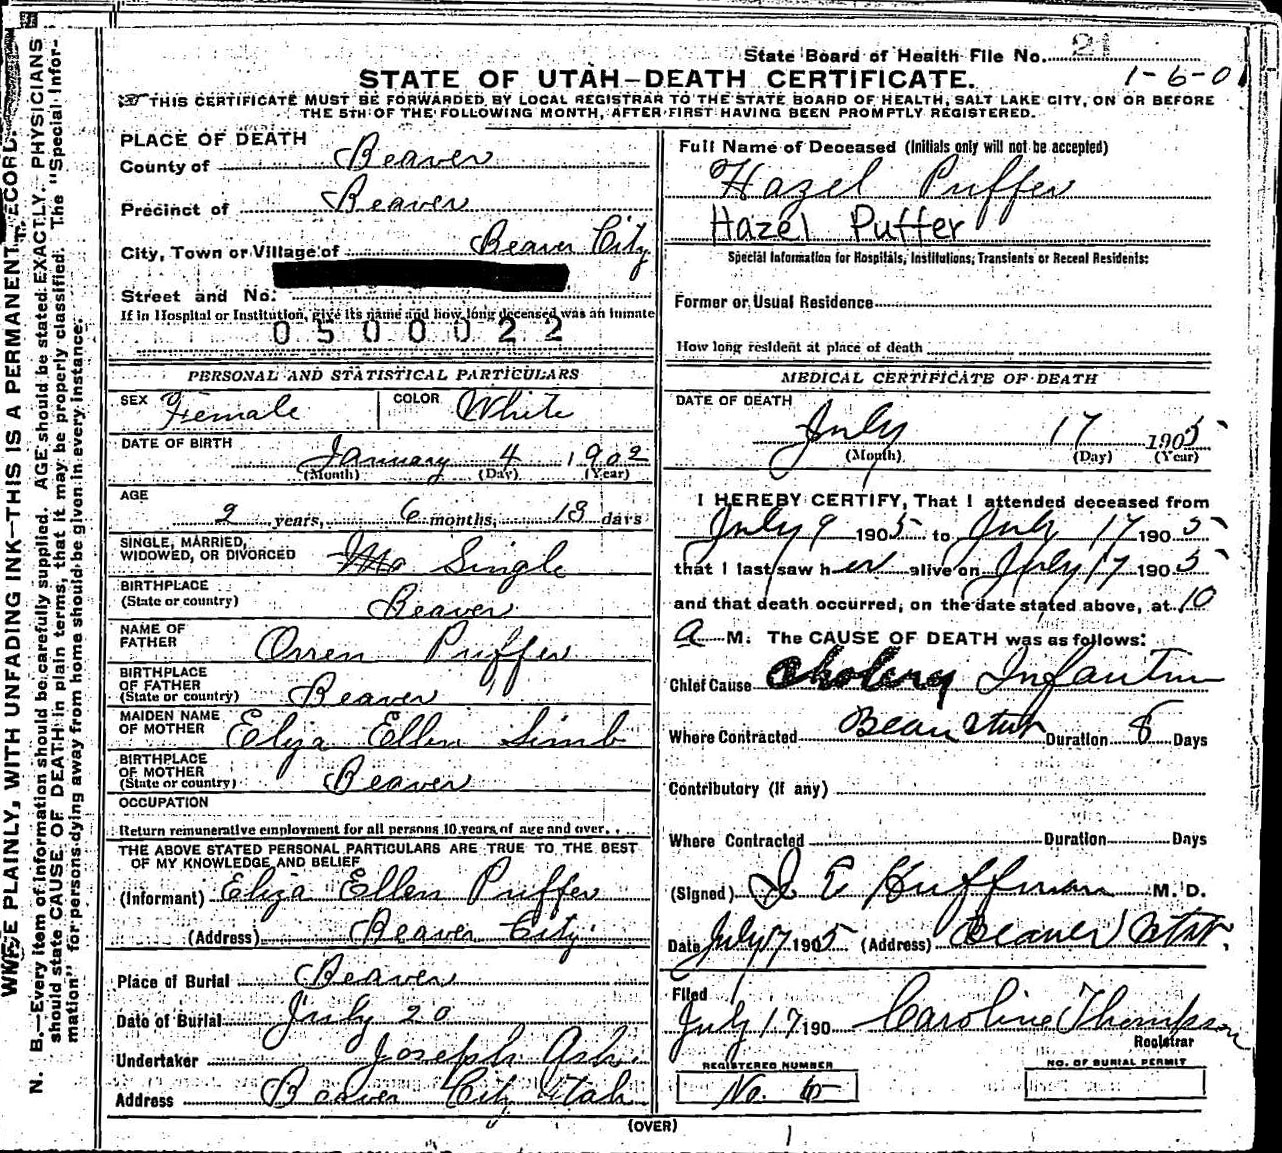 State Board of Health File No. 21
1-6-01
STATE OF UTAH—DEATH CERTIFICATE.
THIS CERTIFICATE MUST BE FORWARDED BY LOCAL REGISTRAR TO THE STATE BOARD OF HEALTH, SALT LAKE CITY, ON OR BEFORE
THE 5TH OF THE FOLLOWING MONTH, AFTER FIRST HAVING BEEN PROMPTLY REGISTERED.
PLACE OF DEATH
County of Beaver
Precinct of Beaver
City, Town or Village of Beaver City
Street and No.
If in Hospital or Institution, give its name and how long deceased was an inmate
0500022
PERSONAL AND STATISTICAL PARTICULARS
SEX Female COLOR White
DATE OF BIRTH
January 4 1902
(Month) (Day) (Year)
AGE
2 years, 6 months, 13 days
SINGLE, MARRIED,
WIDOWED, OR DIVORCED Single
BIRTHPLACE
(State or country) Beaver
NAME OF
FATHER Orren Puffer
BIRTHPLACE
OF FATHER
(State or country) Beaver
MAIDEN NAME
OF MOTHER Eliza Ellen Simb
BIRTHPLACE
OF MOTHER
(State or country) Beaver
OCCUPATION
Return remunerative employment for all persons 10 years of age and over.
THE ABOVE STATED PERSONAL PARTICULARS ARE TRUE TO THE BEST
OF MY KNOWLEDGE AND BELIEF
(Informant) Eliza Ellen Puffer
(Address) Beaver City.
Place of Burial Beaver
Date of Burial July 20
Undertaker Joseph Ash.
Address Beaver City Utah
Full Name of Deceased (Initials only will not be accepted)
Hazel Puffer
Hazel Puffer
Special Information for Hospitals, Institutions, Transients or Recent Residents:
Former or Usual Residence
How long resident at place of death
MEDICAL CERTIFICATE OF DEATH
DATE OF DEATH
July 17 1905
(Month) (Day) (Year)
I HEREBY CERTIFY, That I attended deceased from
July 9 1905 to July 17 1905
that I last saw her alive on July 17 1905
and that death occurred, on the date stated above, at 10
a M. The CAUSE OF DEATH was as follows:
Chief Cause Cholery Infantum
Where Contracted Beaver Utah Duration 8 Days
Contributory (if any)
Where Contracted Duration Days
(Signed) J E Huffman M. D.
Date July 17 1905 (Address) Beaver Utah.
Filed
July 17 190 Caroline Thompson
Registrar
REGISTERED NUMBER
No.
NO. OF BURIAL PERMIT
(OVER)
WRITE PLAINLY, WITH UNFADING INK—THIS IS A PERMANENT RECORD.
N. B.—Every item of information should be carefully supplied. AGE should be stated EXACTLY. PHYSICIANS
should state CAUSE OF DEATH in plain terms, that it may be properly classified. The "Special Infor-
mation" for persons dying away from home should be given in every instance.